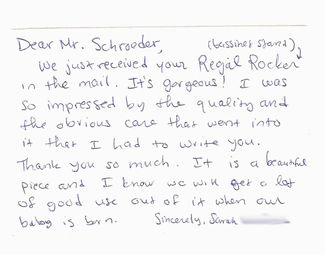 Dear Mr. Schroeder, (bassinet stand),
We just received your Regal Rocker
in the mail. It's gorgeous! I was
so impressed by the quality and
the obvious care that went into
it that I had to write you.
Thank you so much. It is a beautiful
piece and I know we will get a lot
of good use out of it when our
baby is born. Sincerely, Sarah